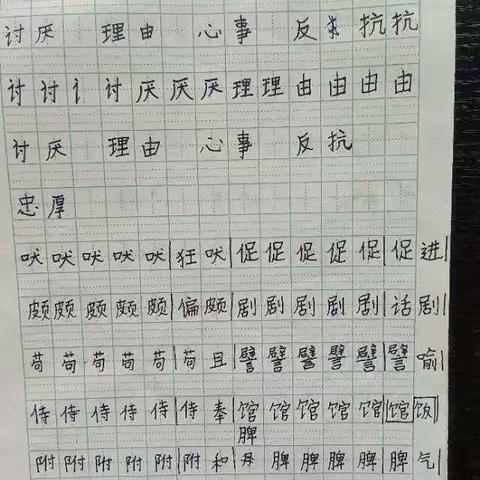 讨厌 理由 心事 反扌抗抗
讨讨讠讨厌厌厌理理由由由由
讨厌 理由 心事 反抗
忠厚
吠吠吠吠吠|狂吠|促促促促促|促进|
颇颇颇颇颇|偏颇|剧剧剧剧剧|话剧
苟苟苟苟苟|苟且|譬譬譬譬譬|譬喻
侍侍侍侍侍|侍奉|馆馆馆馆馆|馆饭
附附附附附|附和|脾脾脾脾脾|脾气